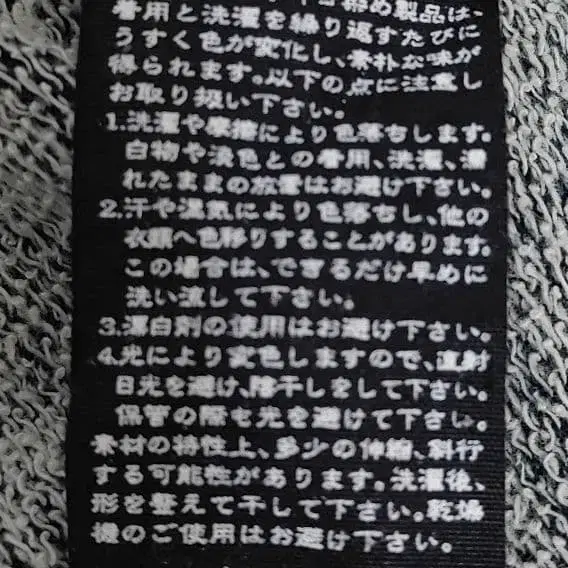 染め製品は、
着用と洗濯を繰り返すたびに
うすく色が変化し、素朴な味が
得られます。以下の点に注意し
お取り扱い下さい。
1.洗濯や摩擦により色落ちします。
白物や淡色との着用、洗濯、濡
れたままの放置はお避け下さい。
2.汗や湿気により色落ちし、他の
衣類へ色移りすることがあります。
この場合は、できるだけ早めに
洗い流して下さい。
3.漂白剤の使用はお避け下さい。
4.光により変色しますので、直射
日光を避け、陰干しをして下さい。
保管の際も光を避けて下さい。
素材の特性上、多少の伸縮、斜行
する可能性があります。洗濯後、
形を整えて干して下さい。乾燥
機のご使用はお避け下さい。